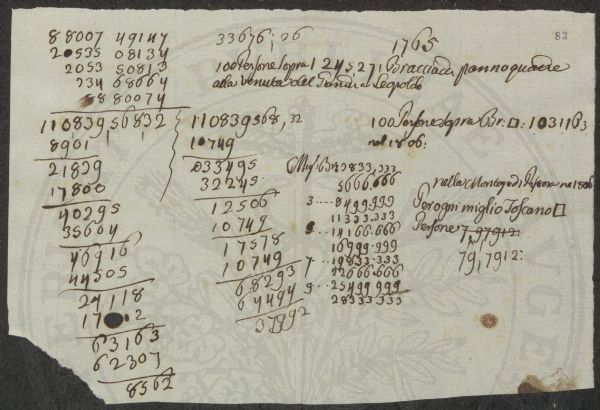 83
88007 49147
20535 08134
2053 50813
234 68664
88 80074
110839 56832
8901
21829
17800
40295
35604
46916
44505
24118
63163
62307
8562
33676 : 26
1765
100 Persone sopra 1245271 Braccia da panno quadre
alla venuta del
Leopoldo
110839568, 32
10749
033495
32245
12506
10749
17578
10749
68293
64494
37992
100 Persone sopra Br: □: 1031163
nel 1806:
Migl Br 2833.333
5666.666
3 -- 8499.999
11333.333
5 -- 14166.666
16999.999
7 -- 19833.333
22666.666
9 -- 25499.999
28333.333
nel 1806
Per ogni miglio Toscano □
Persone 7,97912:
79,7912: